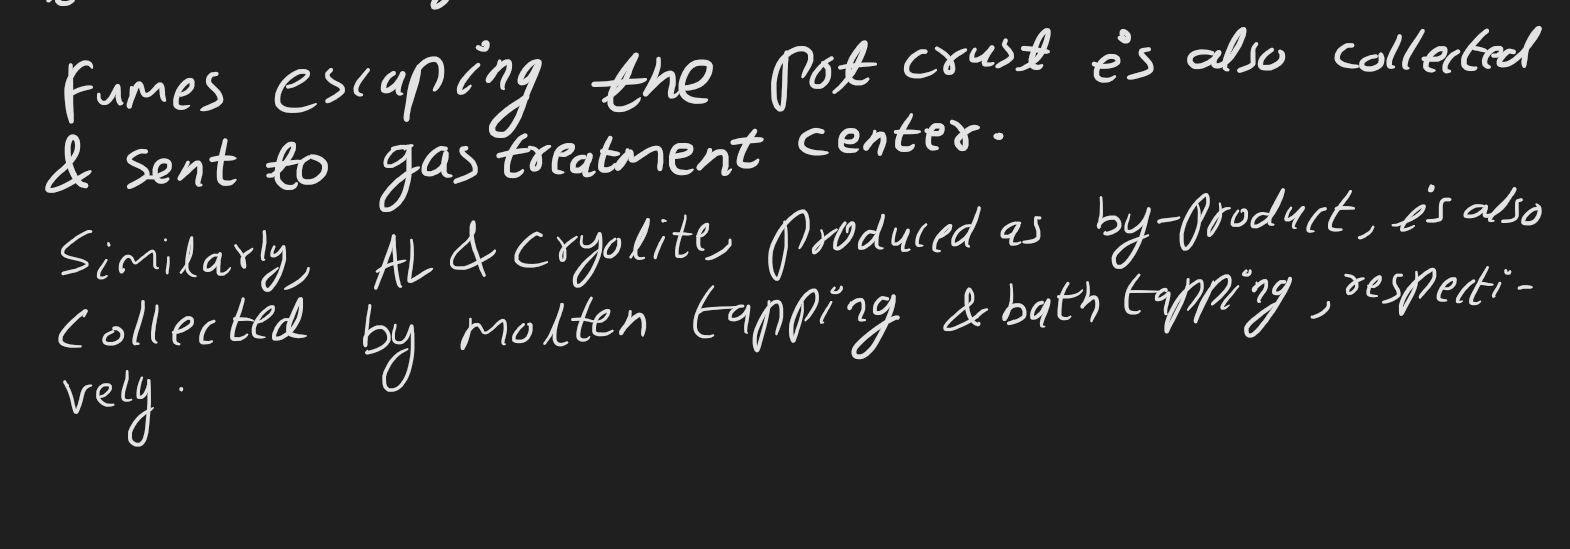 Fumes escaping the pot crust is also collected
& sent to gas treatment center.
Similarly, AL & Cryolite, produced as by-product, is also
Collected by molten tapping & bath tapping, respecti-
vely.